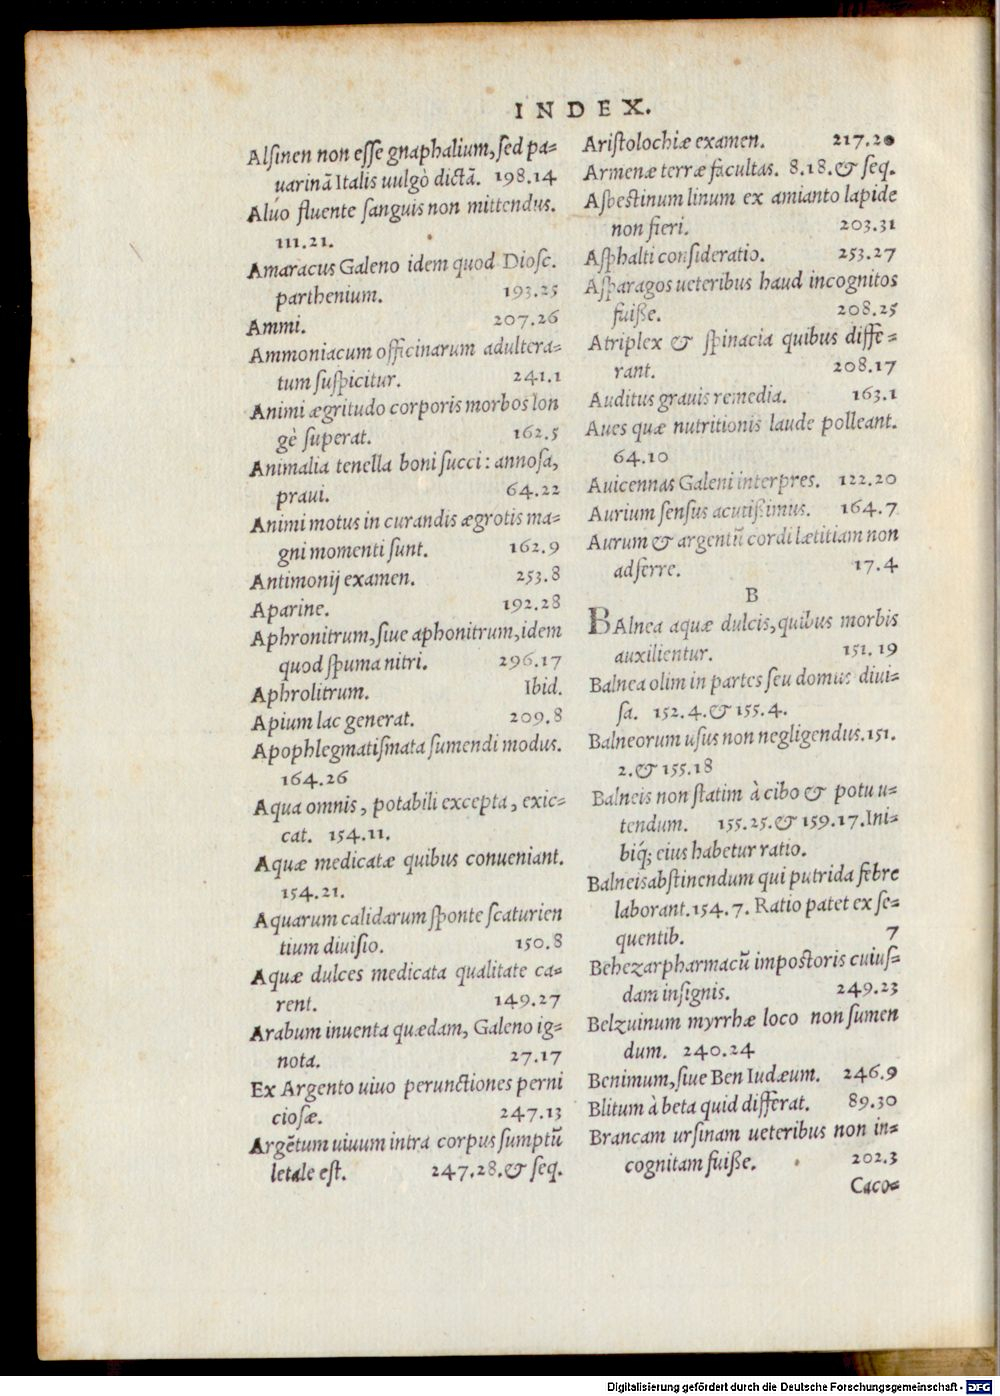 INDEX.
Alſinen non eſſe gnaphalium, ſed pa=
uarinā Italis uulgò dictā. 198.14
Aluo fluente ſanguis non mittendus.
111.21.
Amaracus Galeno idem quod Dioſc.
parthenium. 193.25
Ammi. 207.26
Ammoniacum officinarum adultera=
tum ſuſpicitur. 241.1
Animi ægritudo corporis morbos lon
gè ſuperat. 162.5
Animalia tenella boni ſucci: annoſa,
praui. 64.22
Animi motus in curandis ægrotis ma=
gni momenti ſunt. 162.9
Antimonij examen. 253.8
Aparine. 192.28
Aphronitrum, ſiue aphonitrum, idem
quod ſpuma nitri. 296.17
Aphrolitrum. Ibid.
Apium lac generat. 209.8
Apophlegmatiſmata ſumendi modus.
164.26
Aqua omnis, potabili excepta, exic=
cat. 154.11.
Aquæ medicatæ quibus conueniant.
154.21.
Aquarum calidarum ſponte ſcaturien
tium diuiſio. 150.8
Aquæ dulces medicata qualitate ca=
rent. 149.27
Arabum inuenta quædam, Galeno ig=
nota. 27.17
Ex Argento uiuo perunctiones perni
cioſæ. 247.13
Argētum uiuum intra corpus ſumptū
letale eſt. 247.28.& ſeq.
Ariſtolochiæ examen. 217.20
Armenæ terræ facultas. 8.18.& ſeq.
Aſbeſtinum linum ex amianto lapide
non fieri. 203.31
Aſphalti conſideratio. 253.27
Aſparagos ueteribus haud incognitos
fuiße. 208.25
Atriplex & ſpinacia quibus diffe=
rant. 208.17
Auditus grauis remedia. 163.1
Aues quæ nutritionis laude polleant.
64.10
Auicennas Galeni interpres. 122.20
Aurium ſenſus acutißimus. 164.7
Aurum & argentū cordi lætitiam non
adferre. 17.4
B
BAlnea aquæ dulcis, quibus morbis
auxilientur. 151.19
Balnea olim in partes ſeu domus diui=
ſa. 152.4.& 155.4.
Balneorum uſus non negligendus. 151.
2.& 155.18
Balneis non ſtatim à cibo & potu u=
tendum. 155.25.& 159.17. Ini=
biq́; eius habetur ratio.
Balneis abſtinendum qui putrida febre
laborant. 154.7. Ratio patet ex ſe=
quentib. 7
Behezar pharmacū impoſtoris cuiuſ=
dam inſignis. 249.23
Belzuinum myrrhæ loco non ſumen
dum. 240.24
Benimum, ſiue Ben Iudæum. 246.9
Blitum à beta quid differat. 89.30
Brancam urſinam ueteribus non in=
cognitam fuiße. 202.3
Caco=
Digitalisierung gefördert durch die Deutsche Forschungsgemeinschaft - DFG